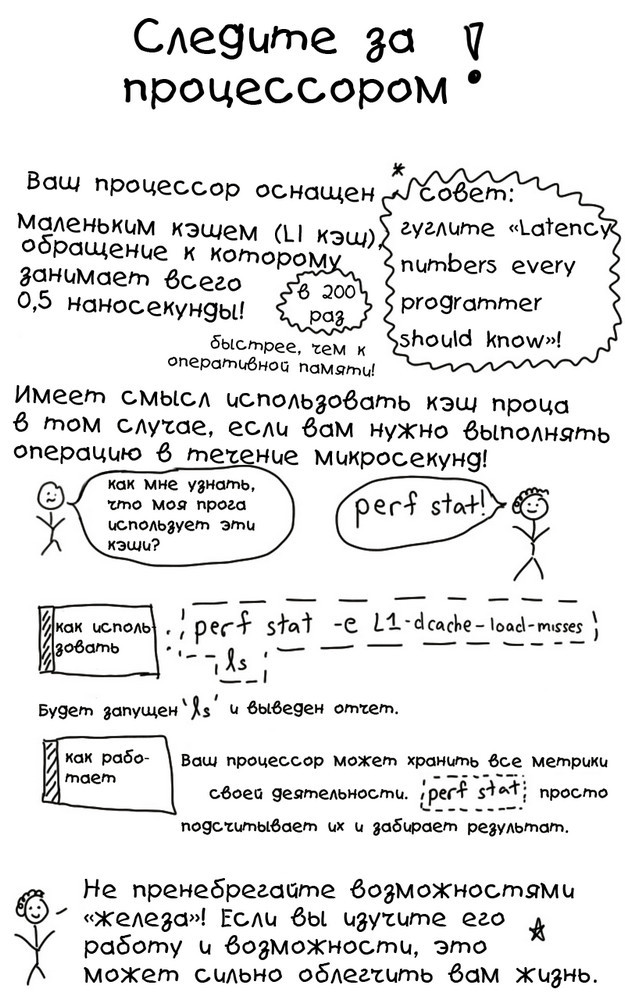 Следите за !
процессором
Ваш процессор оснащен
маленьким кэшем (L1 кэш),
обращение к которому
занимает всего
0,5 наносекунды!
* совет:
гуглите «Latency
numbers every
programmer
should know»!
в 200
раз
быстрее, чем к
оперативной памяти!
Имеет смысл использовать кэш проца
в том случае, если вам нужно выполнять
операцию в течение микросекунд!
как мне узнать,
что моя прога
использует эти
кэши?
perf stat!
как исполь-
зовать
perf stat -e L1-dcache-load-misses
ls
Будет запущен 'ls' и выведен отчет.
как рабо-
тает
Ваш процессор может хранить все метрики
своей деятельности. perf stat просто
подсчитывает их и забирает результат.
Не пренебрегайте возможностями
«железа»! Если вы изучите его
работу и возможности, это
может сильно облегчить вам жизнь.